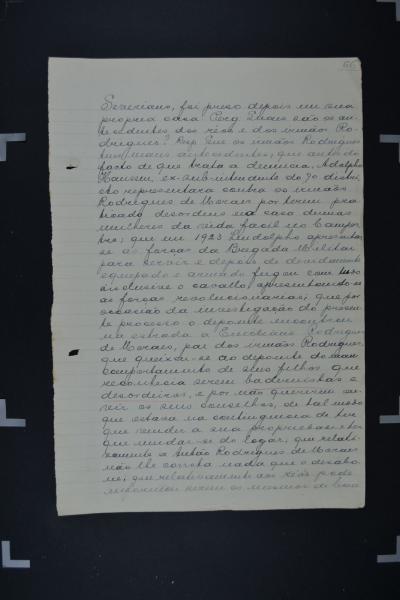 66
Severiano, foi preso depois em sua
propria casa. Perg. Quaes são os an-
tecedentes dos réos e dos irmãos Ro-
drigues? Resp. Que os irmãos Rodrigues
tem maus antecedentes; que antes do
facto de que trata a denuncia, Adolpho
ex-sub-intendente do 7o distri-
cto representara contra os irmãos
Rodrigues de Moraes por terem pra-
ticado desordens na casa de umas
mulheres da vida facil no Campo
que em 1923 Lindolpho apresentou
se ás forças da Brigada Militar
para servir e depois de devidamente
equipado e armado fugiu com
inclusive o cavallo apresentando-se
ás forças revolucionarias; que por
occasião da investigação do presen-
te processo o depoente encontrou
na estrada a Rodrigues
de Moraes, pai dos irmãos Rodrigues,
que queixou-se ao depoente do mau
comportamento de seus filhos que
reconhecia serem badernistas e
desordeiros, e por não quererem ou-
vir os seus conselhos, de tal modo
que estava na contingencia de ter
que vender a sua propriedade e ter
que mudar-se do logar; que relati-
vamente a Antão Rodrigues de Moraes
não lhe consta nada que o desabo-
ne; que relativamente aos réos pode
informar serem os mesmos de boa